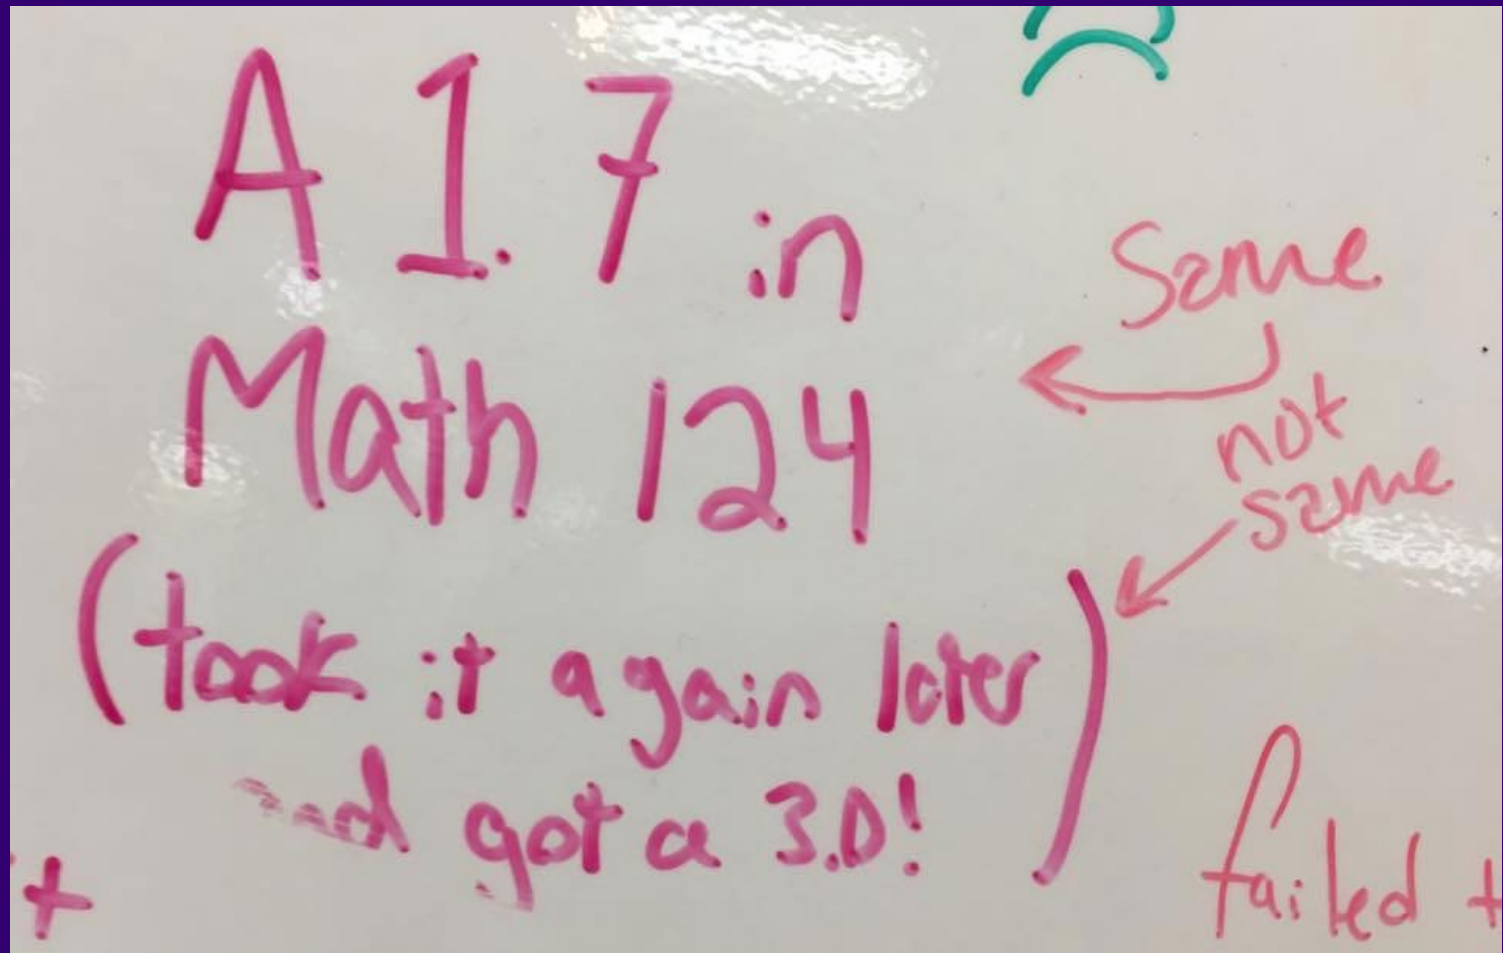 A 1.7 in
Math 124
(took it again later
and got a 3.0!)
Same
not
same
failed